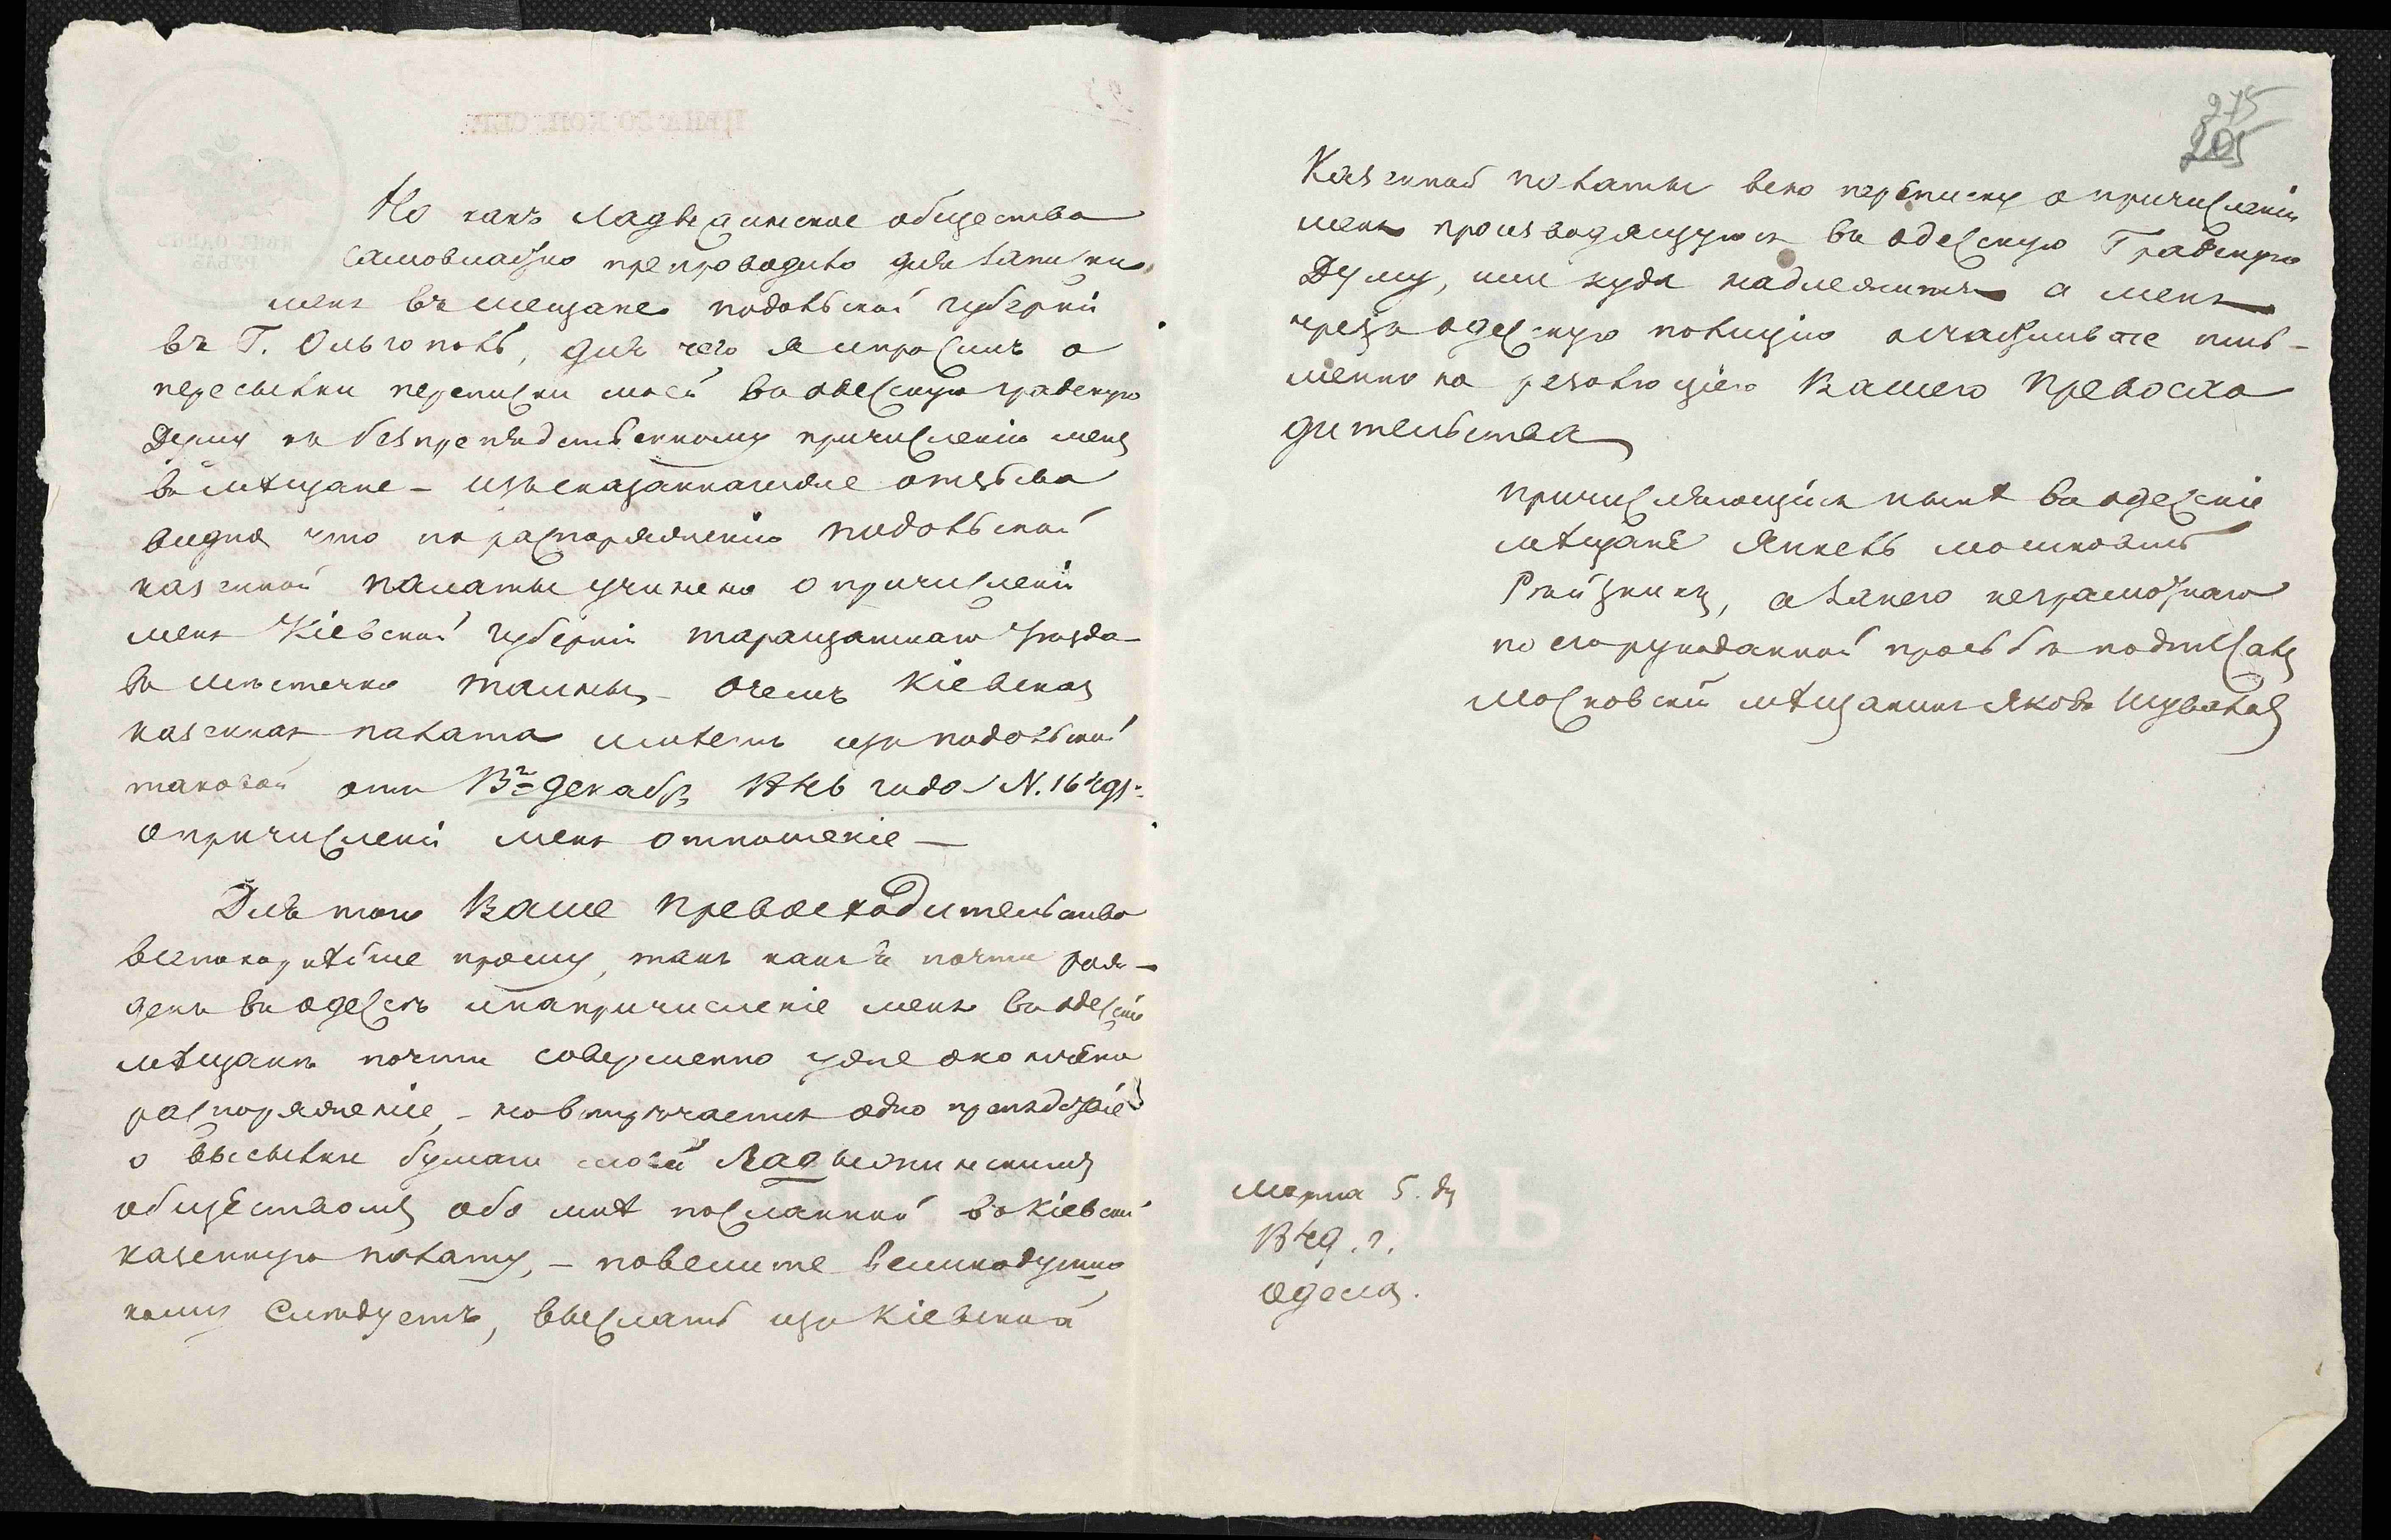 Но какъ Ладыжинское общества
самовласно препроводило для записки
меня въ мещане подольской губерніи
въ Г. Ольгополь, для чего я и просилъ о
пересылки переписки моей въ одесскую градскую
Думу къ безпрепядственному причисленію меня
въ мѣщане – изъ сказаннагоже отзыва
видно что по распоряженію подольской
казенной палаты учинено о причисленіи
меня Кіевской губерніи таращанскаго уезда
въ местечко – очемъ Кіевская
казенная палата имѣетъ изъ подольской
таковой отъ декабр 1846 года N.
о причисленіи меня отношеніе —
Для того Ваше Превосходительство
всепокорнѣйше прошу, такъ какъ я почти рож-
денъ въ одессѣ и на причисленіе меня въ одескіе
мѣщане почти совершенно уже окончено
распоряженіе, – но встречается одно препядствіе
о высылки бумаги моей Ладыжинскимъ
обществомъ обо мнѣ посланной въ Кіевскую
казенную палату, – повелите великодушно
кому Следуетъ, выслать изъ Кіевской
275
205
Казенной палаты всю переписку о причисленіи
меня производящуюся въ одесскую Градскую
Думу, или куда надлежитъ а меня
чрезъ одесскую полицію осчасливьте пись-
менною резолюціею Вашего Превосхо
дительства
причисляющійся нынѣ въ одесскіе
мѣщане Янкель мошковъ
а за него неграмотнаго
по его рукоданной прозьбѣ подписалъ
московскій мѣщанинъ Яковъ Шуваловъ
марта 5. дн
1849. г.
одесса.
ЦѢНА 50 КОП. СЕР.
ЦѢНА ОДИНЪ
РУБЛЬ